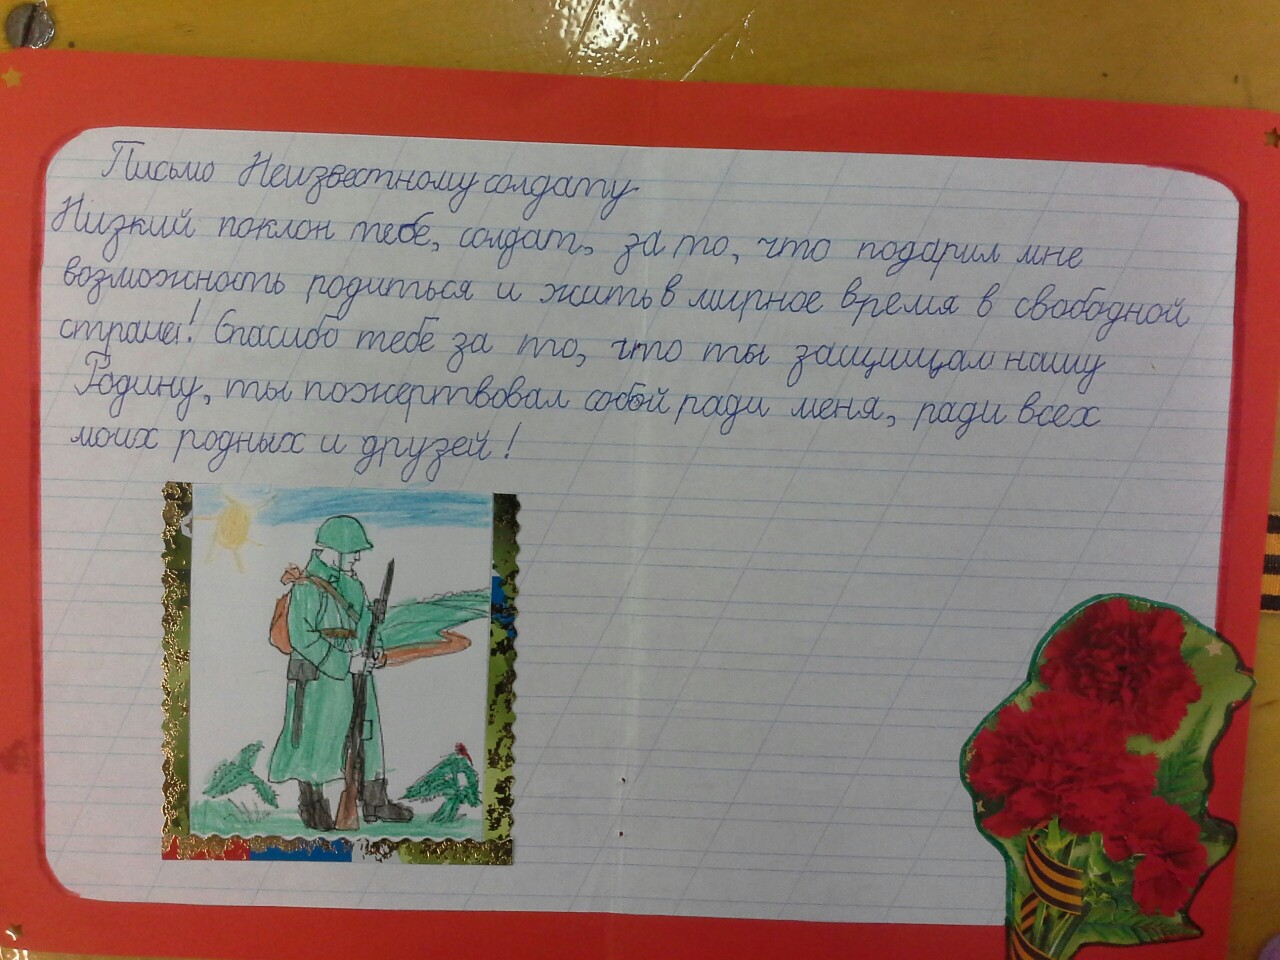 Письмо Неизвестному солдату.
Низкий поклон тебе, солдат, за то, что подарил мне
возможность родиться и жить в мирное время в свободной
стране! Спасибо тебе за то, что ты защищал нашу
Родину, ты пожертвовал собой ради меня, ради всех
моих родных и друзей!